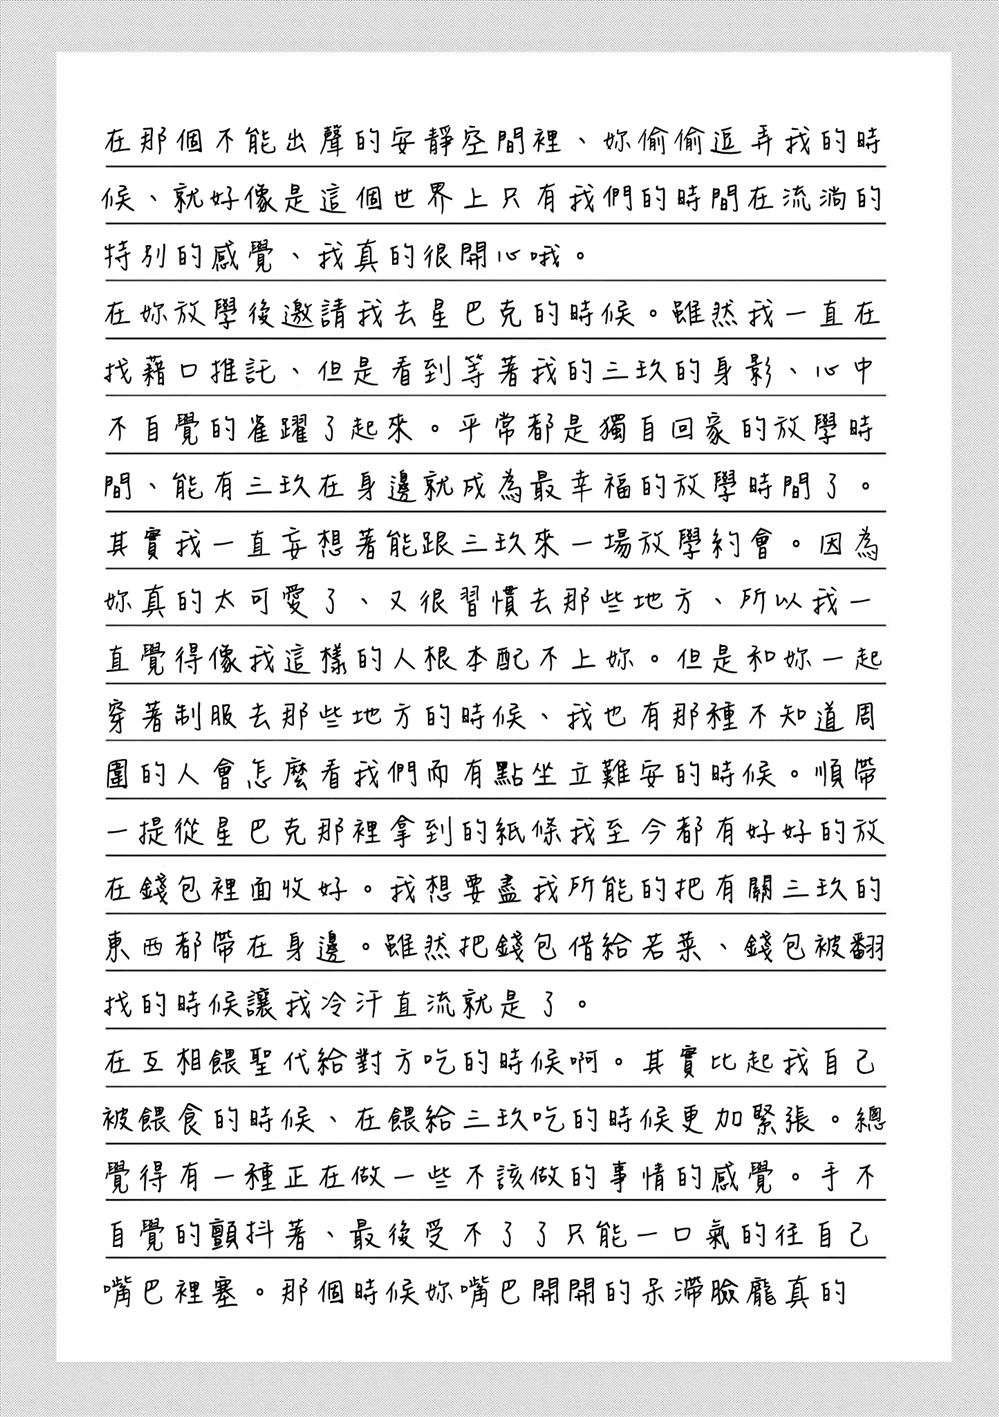 在那個不能出聲的安靜空間裡、妳偷偷逗弄我的時
候、就好像是這個世界上只有我們的時間在流淌的
特別的感覺、我真的很開心哦。
在妳放學後邀請我去星巴克的時候。雖然我一直在
找藉口推託、但是看到等著我的三玖的身影、心中
不自覺的雀躍了起來。平常都是獨自回家的放學時
間、能有三玖在身邊就成為最幸福的放學時間了。
其實我一直妄想著能跟三玖來一場放學約會。因為
妳真的太可愛了、又很習慣去那些地方、所以我一
直覺得像我這樣的人根本配不上妳。但是和妳一起
穿著制服去那些地方的時候、我也有那種不知道周
圍的人會怎麼看我們而有點坐立難安的時候。順帶
一提從星巴克那裡拿到的紙條我至今都有好好的放
在錢包裡面收好。我想要盡我所能的把有關三玖的
東西都帶在身邊。雖然把錢包借給若菜、錢包被翻
找的時候讓我冷汗直流就是了。
在互相餵聖代給對方吃的時候啊。其實比起我自己
被餵食的時候、在餵給三玖吃的時候更加緊張。總
覺得有一種正在做一些不該做的事情的感覺。手不
自覺的顫抖著、最後受不了了只能一口氣的往自己
嘴巴裡塞。那個時候妳嘴巴開開的呆滯臉龐真的